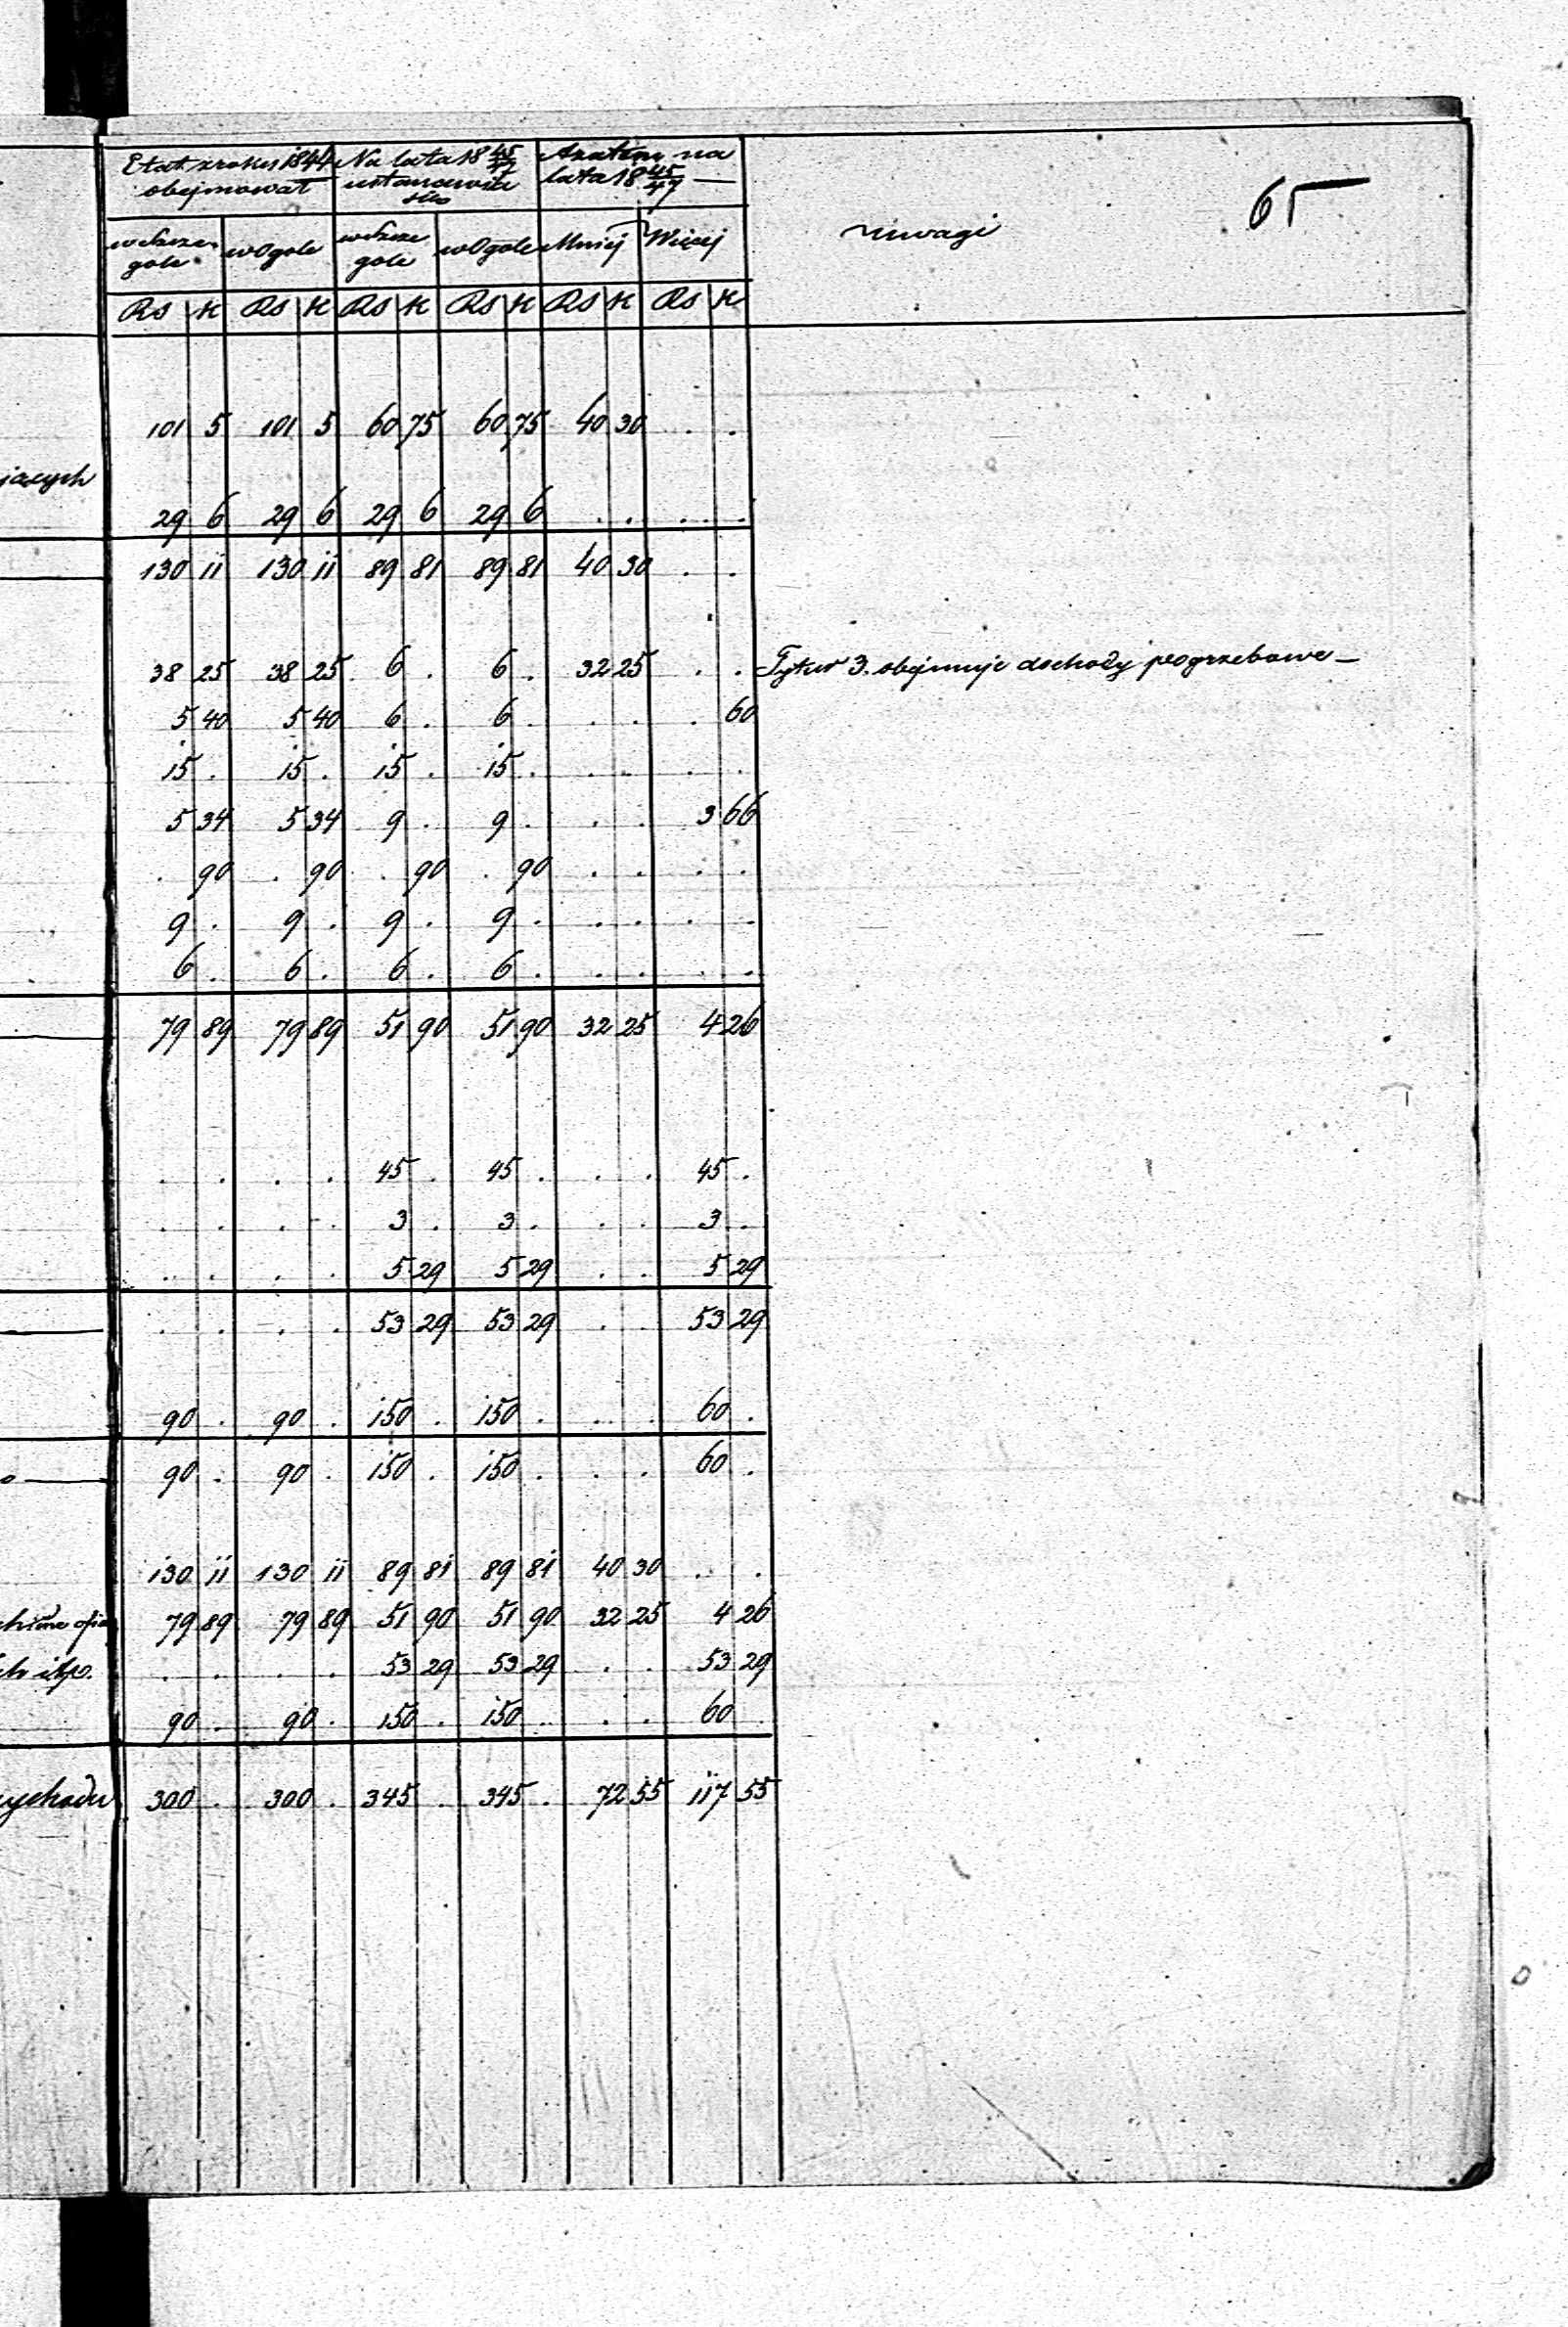 65
Etat z roku 1844 Na lata 18 45/47 A zatem na
obejmował ustanowiła lata 18 45/47 —
się
w szcze- w Ogole w szcze w Ogole Mniej Więcej uwagi
gole gole
Rs K Rs K Rs K Rs K Rs K Rs K
101 5 101 5 60 75 60 75 40 30 . .
jących
29 6 29 6 29 6 29 6 . . . .
130 11 130 11 89 81 89 81 40 30 . .
38 25 38 25 6 . 6 . 32 25 . . Tytuł 3. obejmuje dochody pogrzebowe —
5 40 5 40 6 . 6 . . . . 60
15 . 15 . 15 . 15 . . . . .
5 34 5 34 9 . 9 . . . 3 66
. 90 . 90 . 90 . 90 . . . .
9 . 9 . 9 . 9 . . . . .
6 . 6 . 6 . 6 . . . . .
79 89 79 89 51 90 51 90 32 25 4 26
. . . . 45 . 45 . . . 45 .
. . . . 3 . 3 . . . 3 .
. . . . 5 29 5 29 . . 5 29
. . . . 53 29 53 29 . . 53 29
90 . 90 . 150 . 150 . . . 60 .
90 . 90 . 150 . 150 . . . 60 .
130 11 130 11 89 81 89 81 40 30 . .
79 89 79 89 51 90 51 90 32 25 4 26
itp. . . . . 53 29 53 29 . . 53 29
90 . 90 . 150 . 150 . . . 60
ychodu 300 . 300 . 345 . 345 . 72 55 117 55